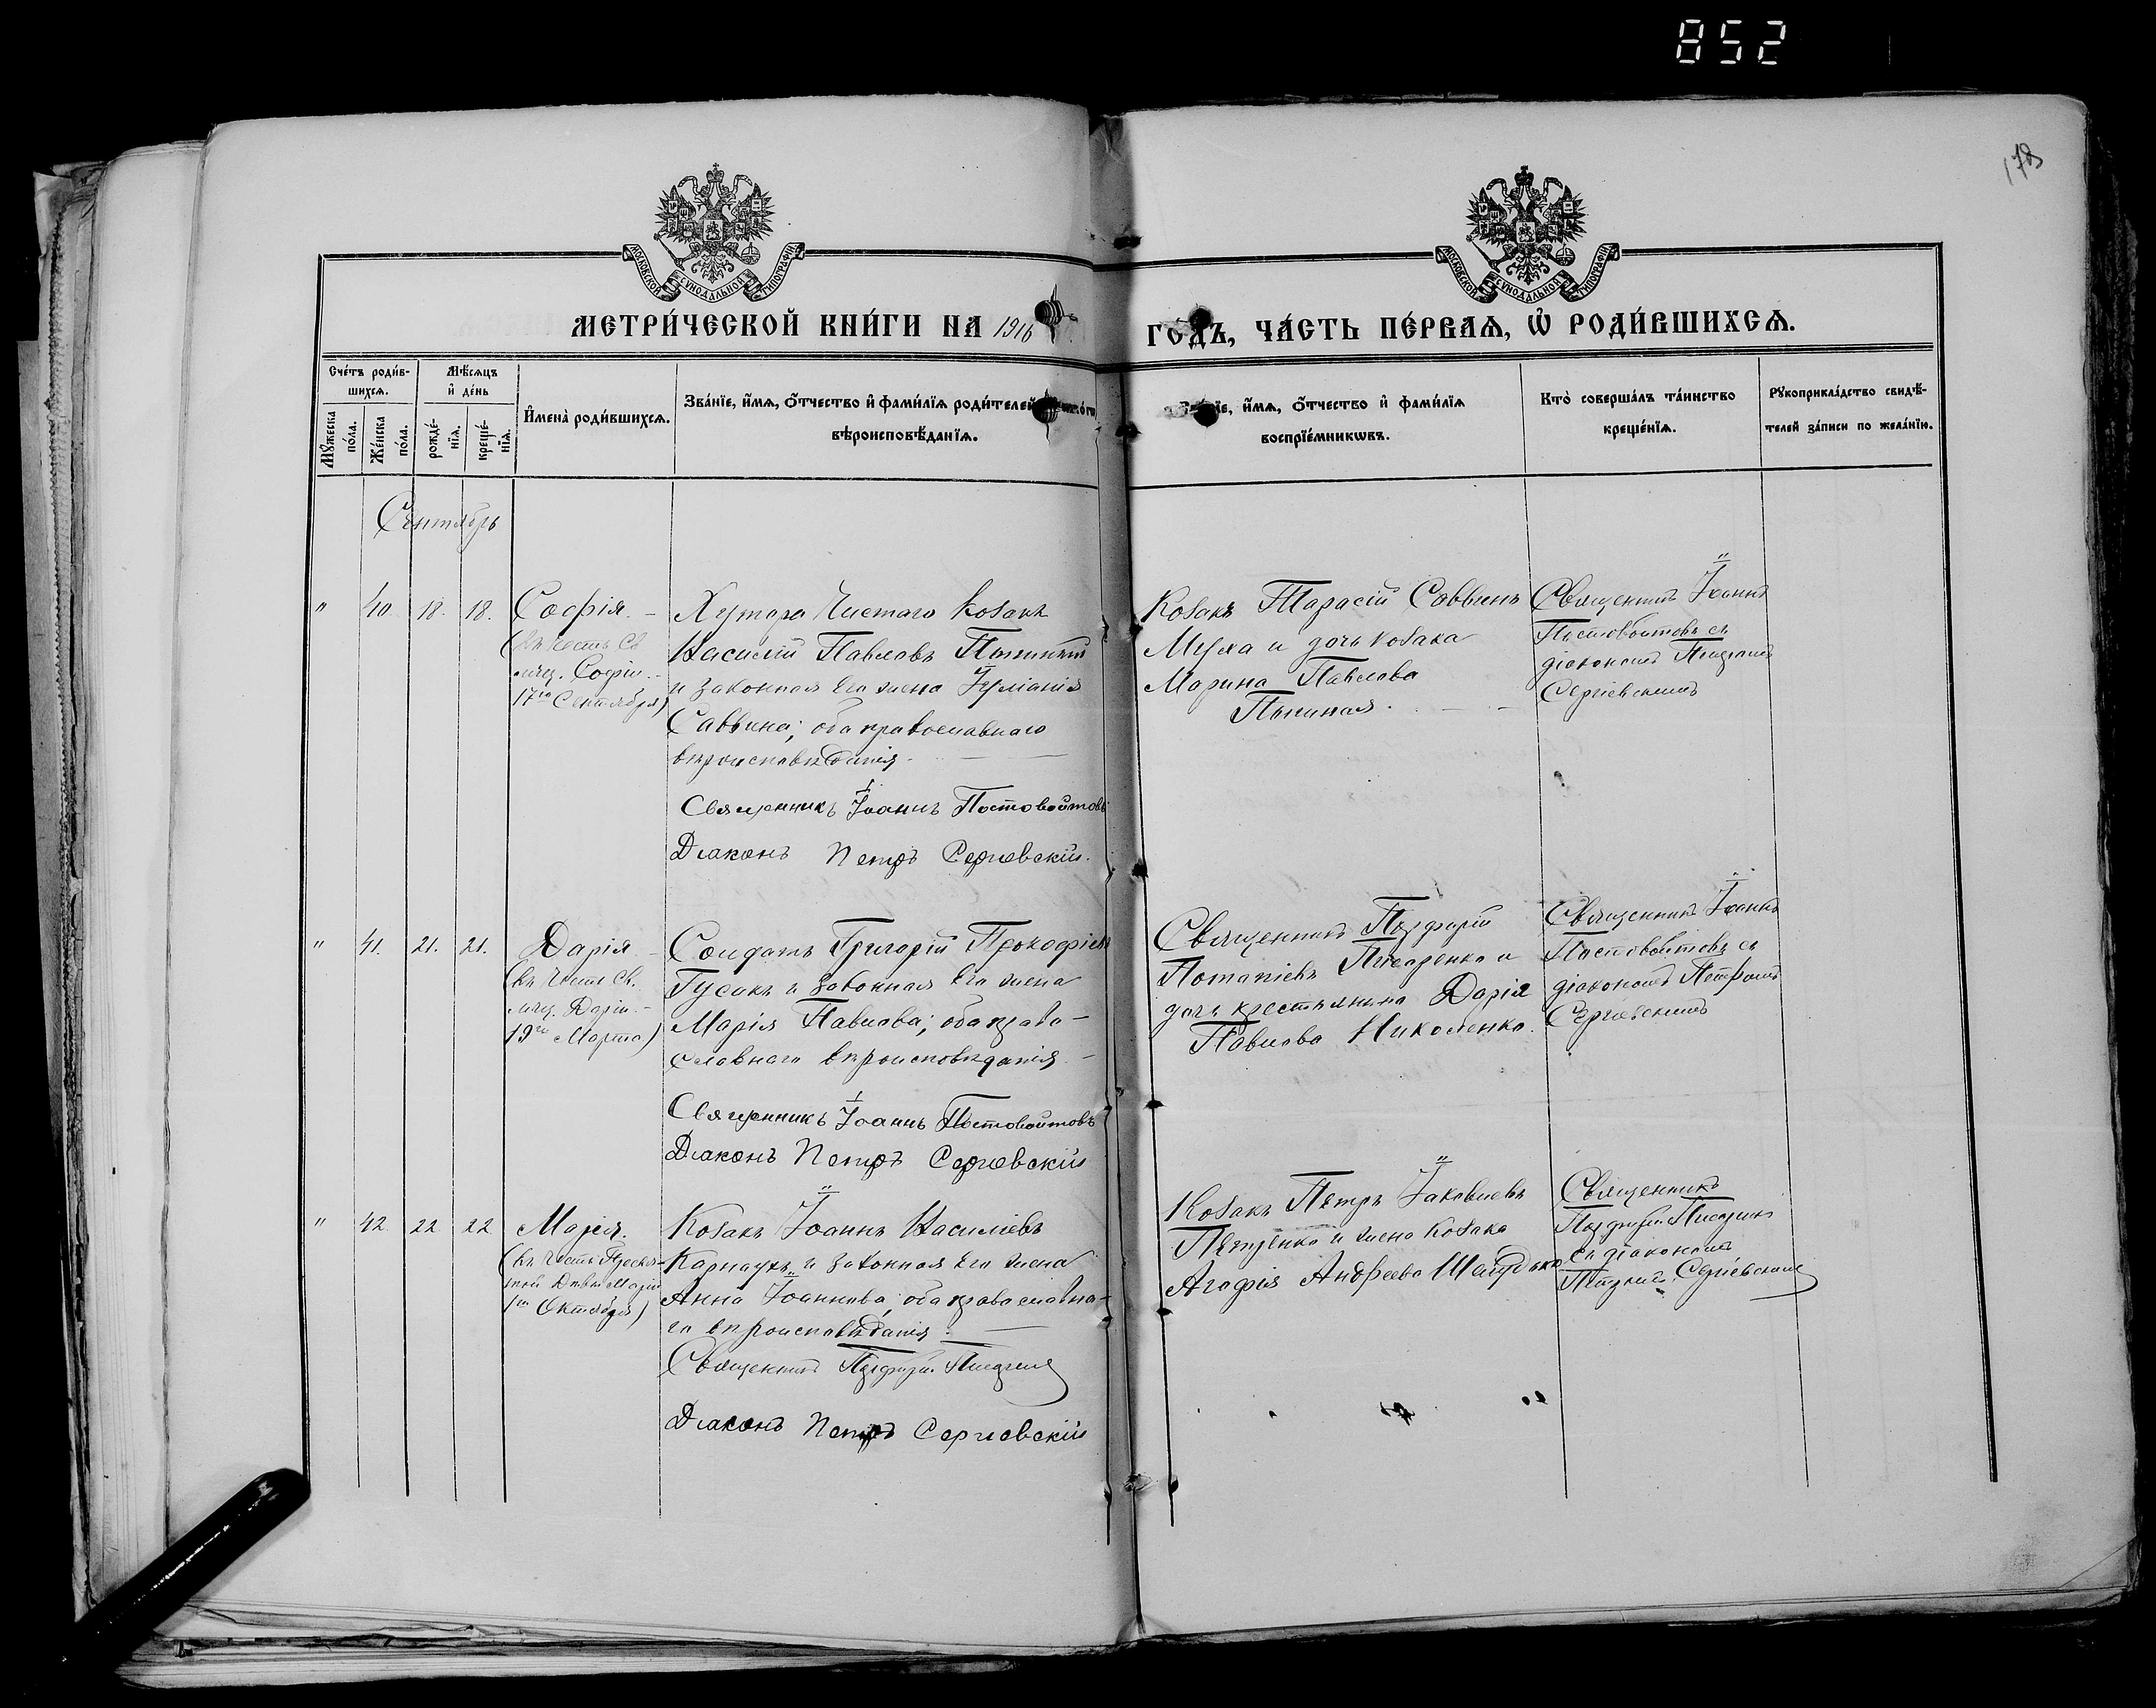 852
178
МОСКОВСКОЙ СУНОДАЛЬНОЙ ТИПОГРАФІИ
МОСКОВСКОЙ СУНОДАЛЬНОЙ ТИПОГРАФІИ
МЕТРИ́ЧЕСКОЙ КНИ́ГИ НА 1916
ГО́ДЪ, ЧА́СТЬ ПЕ́РВАѦ, Ѽ РОДИ́ВШИХСѦ.
Сче́тъ роди́в-
шихсѧ.
Мѣ́сяцъ
и҆ де́нь
Мꙋ́жеска
по́ла.
Же́нска
по́ла.
рожде́-
нїѧ.
креще́-
нїѧ.
И҆мена̀ роди́вшихсѧ.
Зва́нїе, и҆́мѧ, ѻ҆́тчество и҆ фами́лїѧ роди́телей
вѣроисповѣ́данїѧ.
и҆́мѧ, ѻ҆́тчество и҆ фами́лїѧ
воспрїе́мникѡвъ.
Кто̀ соверша́лъ та́инство
креще́нїѧ.
Рꙋкоприкла́дство свидѣ́-
телей за́писи по жела́нїю.
Сентябрь
" 40. 18. 18. Софія. –
(въ честь св.
мчц. Софіи. –
17го Сентября)
Хутора Чистаго козакъ
Василій Павловъ
и законная его жена Іуліанія
Саввина; оба православнаго
вѣроисповѣданія. –
Священникъ Іоаннъ Постовойтовъ
Діаконъ Петръ Сергіевскій.
Козакъ Тарасій Саввинъ
Муха и дочь козака
Марина Павлова
Священникъ Іоаннъ
Постовойтовъ съ
діакономъ Петромъ
Сергіевскимъ
" 41. 21. 21. Дарія. –
(въ честь св.
мчц. Даріи. –
19го Марта)
Солдатъ Григорій Прокофіевъ
Гусакъ и законная его жена
Марія Павлова; оба право-
славнаго вѣроисповѣданія. –
Священникъ Іоаннъ Постовойтовъ
Діаконъ Петръ Сергіевскій
Священникъ Порфирій
Потапіевъ Писаренко и
дочь крестьянина Дарія
Павлова Николенко.
Священникъ Іоаннъ
Постовойтовъ съ
діакономъ Петромъ
Сергіевскимъ
" 42. 22 22 Марія.
(въ честь Пресвя-
той Дѣвы Маріи
1го Октября)
Козакъ Іоаннъ Василіевъ
Карнаухъ и законная его жена
Анна Іоаннова; оба православна-
го вѣроисповѣданія. –
Священникъ Порфирій
Діаконъ Петръ Сергіевскій
Козакъ Петръ Іаковлевъ
Петренко и жена козака
Агафія Андреева
Священникъ
Порфирій
съ діакономъ
Петромъ Сергіевскимъ